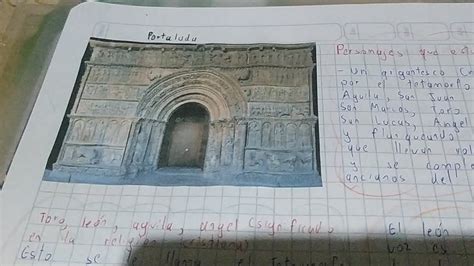 Portalada
Personajes que
- Un gigantesco C
por el tetamorfo
Aguila, San Juan
San Marcos, Toro
San Lucas, Angel
y flanqueando
que llevan
y se comple
ancianos del
Toro, león, aguila, angel (significado
en la religión cristiana)
Esto se llama el Tetamorfo
El león
voz es